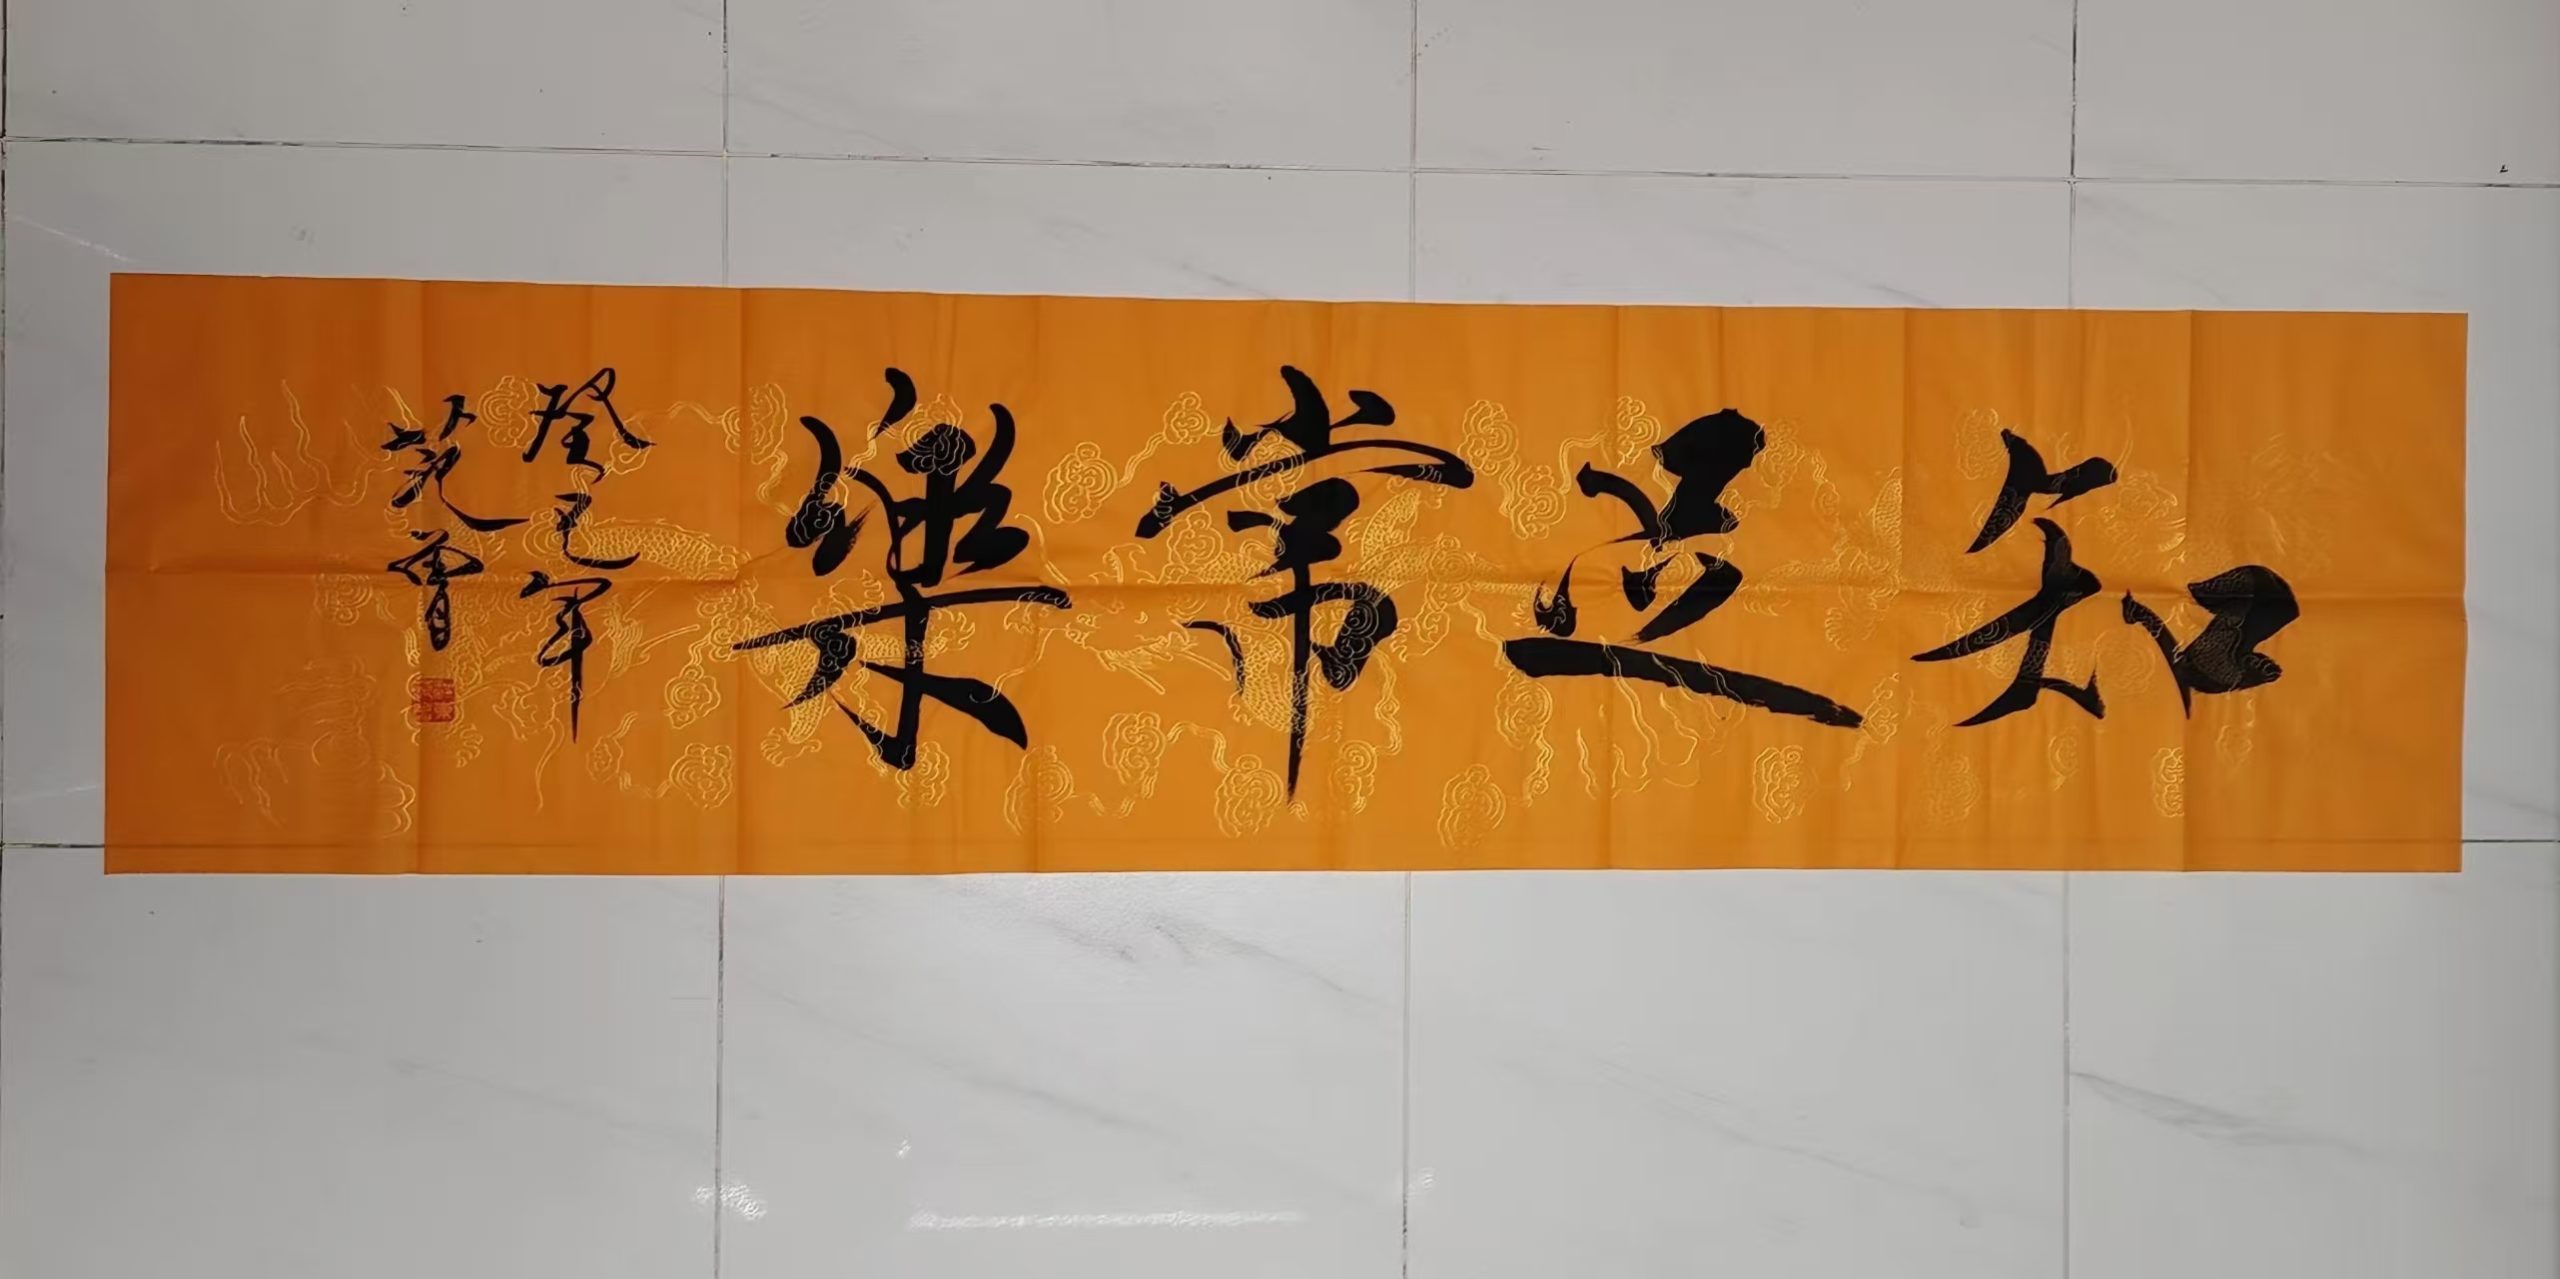 知足常樂
癸巳年
范曾